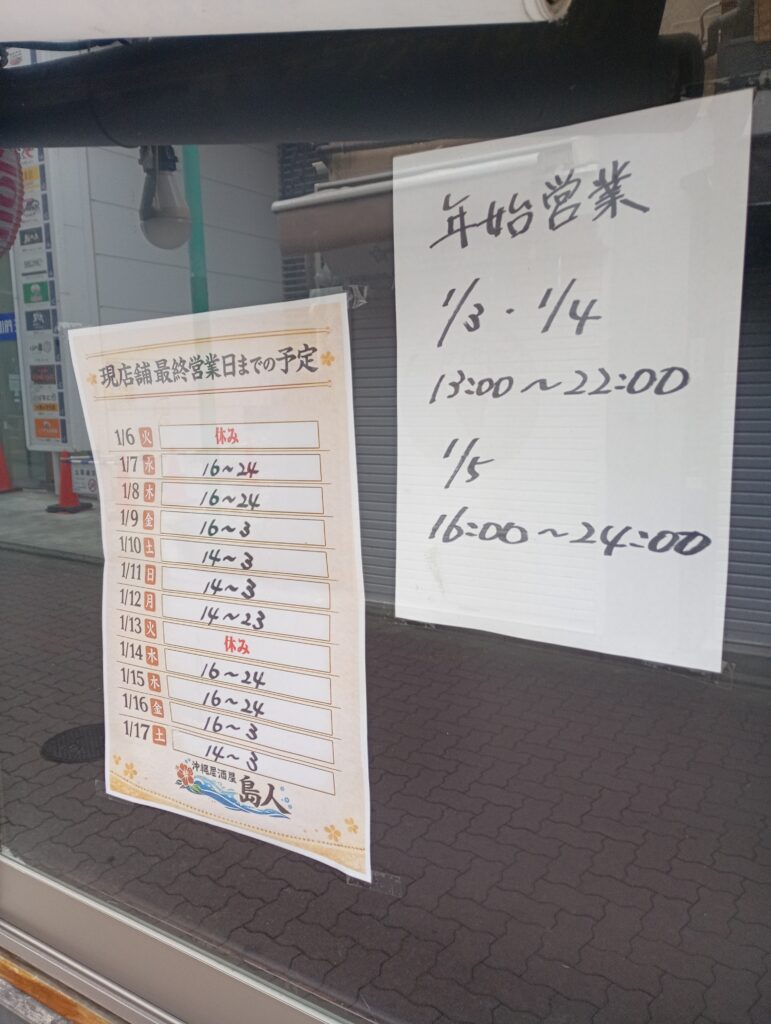 現店舗最終営業日までの予定
1/6 火 休み
1/7 水 16~24
1/8 木 16~24
1/9 金 16~3
1/10 土 14~3
1/11 日 14~3
1/12 月 14~23
1/13 火 休み
1/14 水 16~24
1/15 木 16~24
1/16 金 16~3
1/17 土 14~3
沖縄居酒屋
島人
年始営業
1/3・1/4
13:00~22:00
1/5
16:00~24:00